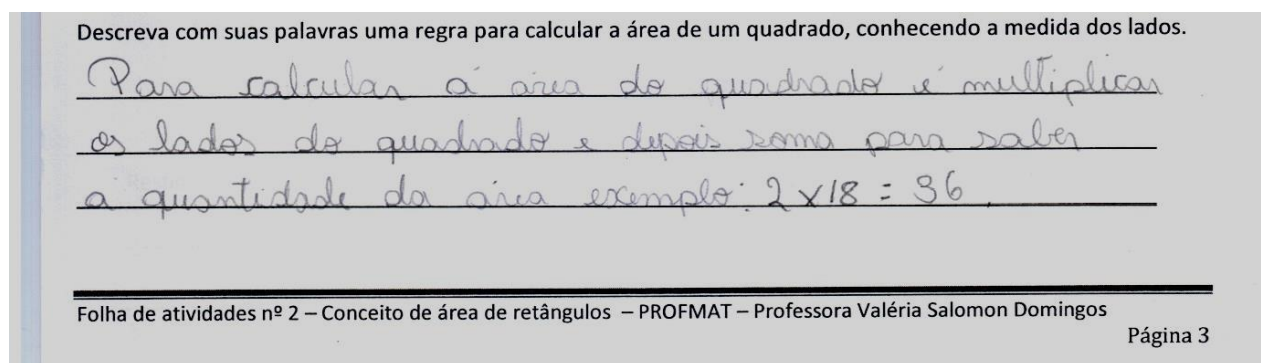 Descreva com suas palavras uma regra para calcular a área de um quadrado, conhecendo a medida dos lados.
Para calcular á área do quadrado é multiplicar
os lados do quadrado e depois soma para saber
a quantidade da área exemplo: 2 x 18 = 36
Folha de atividades nº 2 – Conceito de área de retângulos – PROFMAT – Professora Valéria Salomon Domingos
Página 3